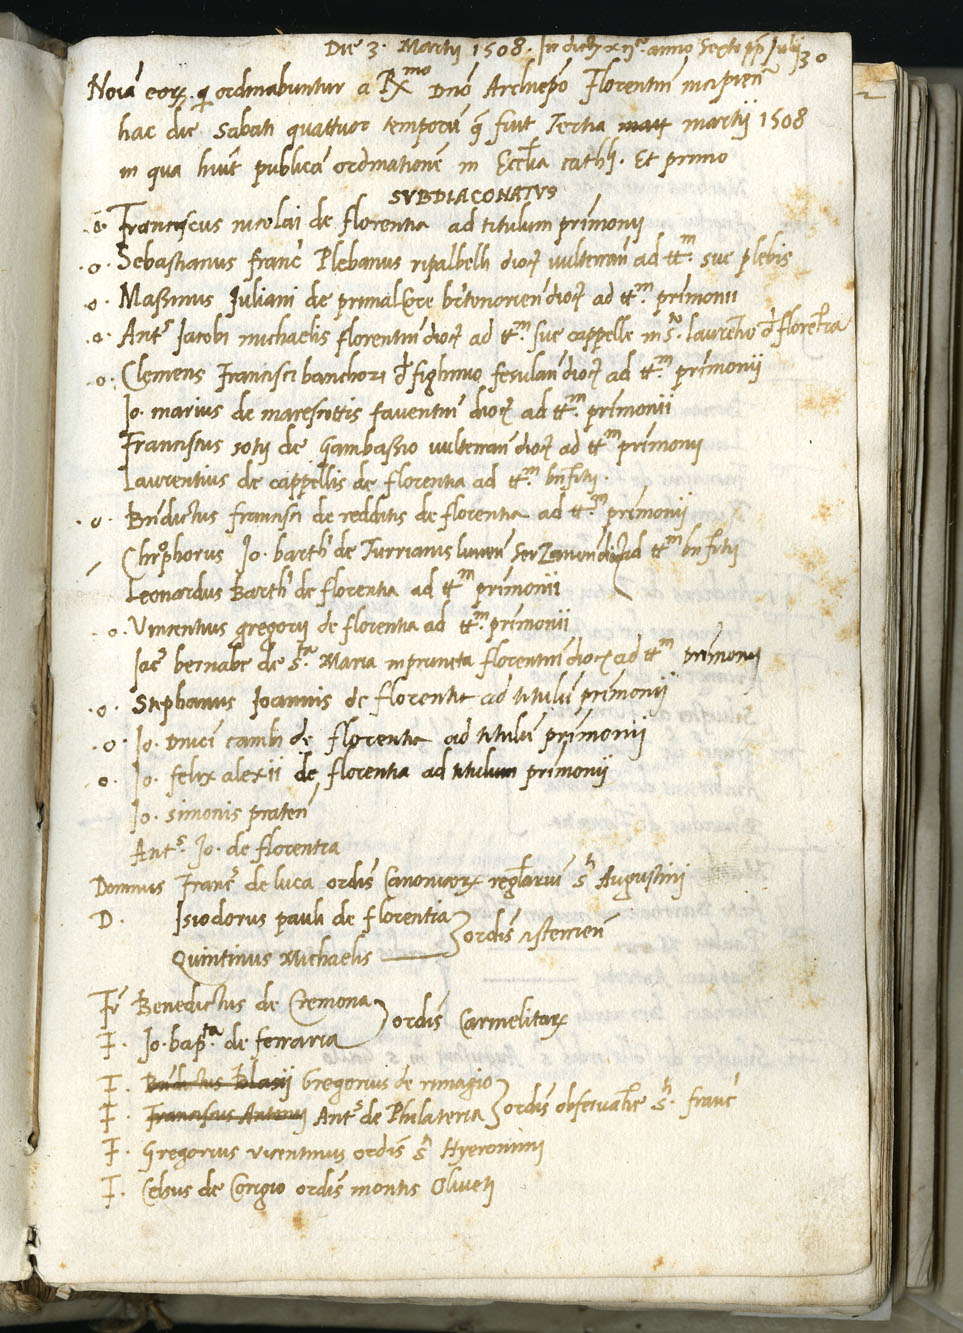 Die 3. Martii 1508. Indict. xii. anno Sexto pp Julii
30
Noĩa eorꝫ qͥ ordinabuntur a Rx^mo Dnõ Archiepõ Florentin̄ incipien̄
hac die Sabati quattuor temporũ q̃ fuit Tertia martij 1508
in qua huit publicã ordinationẽ in Eccl̃ia cathl̃i. Et primo
SVBDIACONATVS
.o. Franciscus nicolai de florentia ad titulum prĩmonij
.o. Sebastianus franc̃ Plebanus ripalbelli dioc̃ vulterran̄ ad tt^m. sue plebis
.o. Massimus Juliani de dioc̃ ad tt^m. prĩmonii
.o. Ant^s Jacobi michaelis florentin̄ dioc̃ ad tt^m. sue cappelle in s^to. laurentio d̃ florentia
.o. Clemens Francisci banchozi d̃ fighino fesulan̄ dioc̃ ad tt^m. prĩmonii
Jo. marius de marescottis faventin̄ dioc̃ ad tt^m. prĩmonii
Franciscus de gambassio vulterran̄ dioc̃ ad tt^m prĩmonij
Laurentius de cappellis de florentia ad tt^m. bn̄fitii
.o. Bn̄dictus francisci de redditis de florentia ad tt^m. prĩmonij
Chr̃ophorus Jo. barth̃ de Turrianis dioc̃ ad tt^m bn̄fitii
Leonardus Barth̃ de florentia ad tt^m prĩmonii
.o. Vincentius gregorij de florentia ad tt^m. prĩmonii
Jac^s bernabe de s^ta. Maria inpruneta florentin̄ dioc̃ ad tt^m prĩmonij
.o. Stephanus Joannis de florentia ad titulũ prĩmonij
.o. Jo. Dn̄ici cambi de florentia ad titulũ prĩmonij
.o. Jo. felix alexii de florentia ad titulum prĩmonij
Jo. simonis praten̄
Ant^s. Jo. de florentia
Domnus Franc^s de luca ordĩs Canonicorꝫ regl̃ariũ s^ti Augustini
D. Isiodorus pauli de florentia
Quintinus Michaelis
ordĩs cistercien̄
Fr̃ Benedictus de Cremona
F. Jo. bap^ta. de ferraria
ordĩs Carmelitarꝫ
F. Bn̄dictus Blasij Gregorius de rimagio
F. Franciscus Antonij Ant^s de Philateria
ordĩs observatiẽ s^ti. franc̃
F. Gregorius vicentinus ordĩs s^ti Hyeronimi
F. Celsus de Corigio ordĩs montis Oliveti